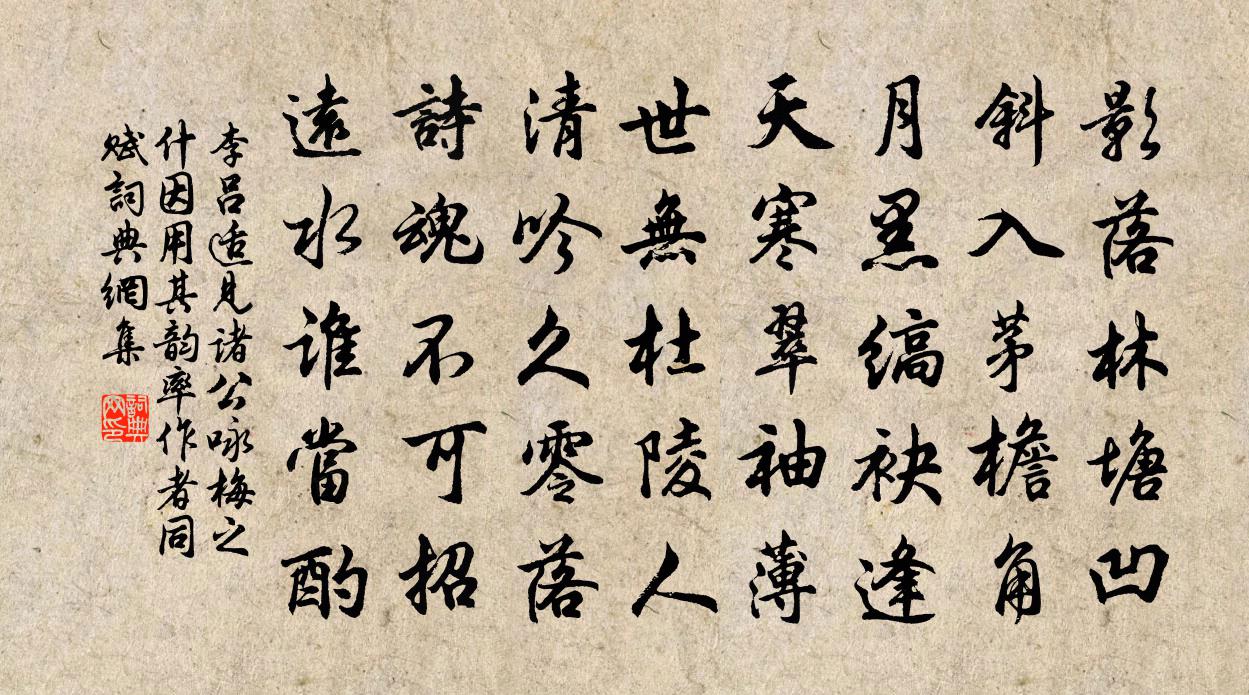 影落林塘凹
斜入茅檐角
月黑縞袂逢
天寒翠袖薄
世無杜陵人
清吟久零落
詩魂不可招
遠水誰當酌
李呂适見諸公咏梅之
什因用其韵率作者同
賦詞典網集
詞典
网印